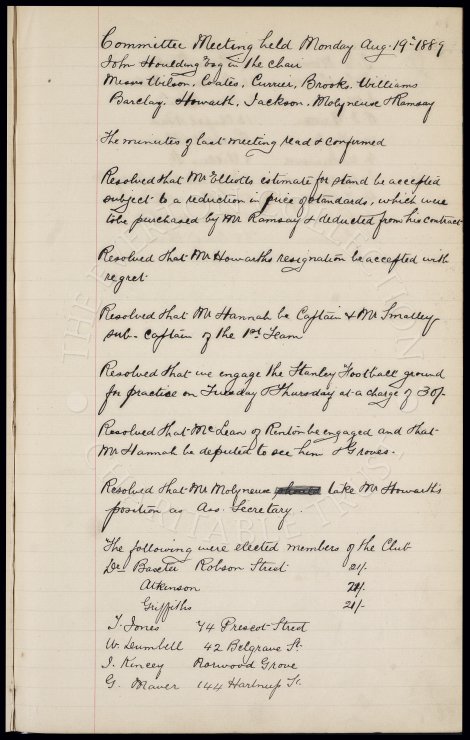 Committee Meeting held Monday Aug. 19th 1889
John Houlding Esq in the chair
Messrs Wilson, Coates, Currier, Brooks, Williams
Barclay, Howarth, Jackson, Molyneux & Ramsay
The minutes of last meeting read & confirmed
Resolved that Mr Elliotts estimate for stand be accepted
subject to a reduction in price of standards, which were
to be purchased by Mr Ramsay & deducted from his contract
Resolved that Mr Howarths resignation be accepted with
regret
Resolved that Mr Hannah be Captain & Mr Smalley
sub-captain of the 1st Team
Resolved that we engage the Stanley Football ground
for practice on Tuesday & Thursday at a charge of 30/-
Resolved that McLean of Renton be engaged and that
Mr Hannah be deputed to see him & Groves.
Resolved that Mr Molyneux take Mr Howarth's
position as Ass. Secretary.
The following were elected members of the Club
Dr Baxter Robson Street 21/-
Atkinson 21/-
Griffiths 21/-
T. Jones 74 Prescot Street
W. Dumbell 42 Belgrave St.
J. Kincey Rorwood Grove
G. Maver 144 Hartnup St.